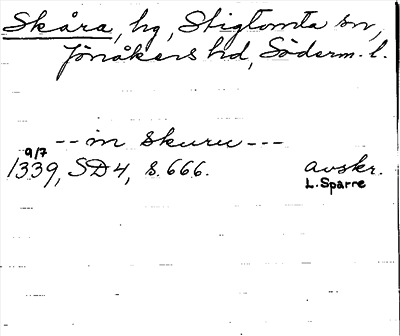 Skåra, hg, Stigtomta sn,
Jönåkers hd, Söderm. l.
-- in Skuru ---
9/7
1339, SD4, s. 666. avskr.
L. Sparre